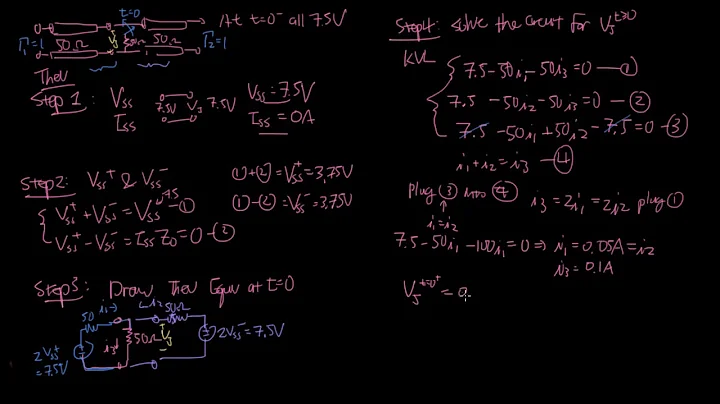 t=0
At t=0⁻ all 7.5V
Γ₁=1 50Ω 50Ω 50Ω Γ₂=1
50Ω Vⱼ 50Ω
Then
Step 1: Vss 7.5V Vⱼ 7.5V Vss=7.5V
Iss Iss=0A
Step 2: Vss⁺ & Vss⁻ ①+②=Vss⁺=3.75V
Vss⁺+Vss⁻=Vss 7.5 —① ①-②=Vss⁻=3.75V
Vss⁺-Vss⁻=Iss Z₀=0 —②
Step 3: Draw Thev Equiv at t=0
50 i₁→ ←i₂ 50Ω
i₃↓ 50Ω Vⱼ 2Vss⁻=7.5V
2Vss⁺
=7.5V
Step 4: Solve the circuit for Vⱼ t≥0
KVL
7.5-50i₁-50i₃=0 —①
7.5-50i₂-50i₃=0 —②
7.5-50i₁+50i₂-7.5=0 —③
i₁+i₂=i₃ —④
Plug ③ into ④ i₃=2i₁=2i₂ plug ①
i₁=i₂
7.5-50i₁-100i₁=0 ⇒ i₁=0.05A=i₂
i₃=0.1A
Vⱼ t=0⁺ = 0